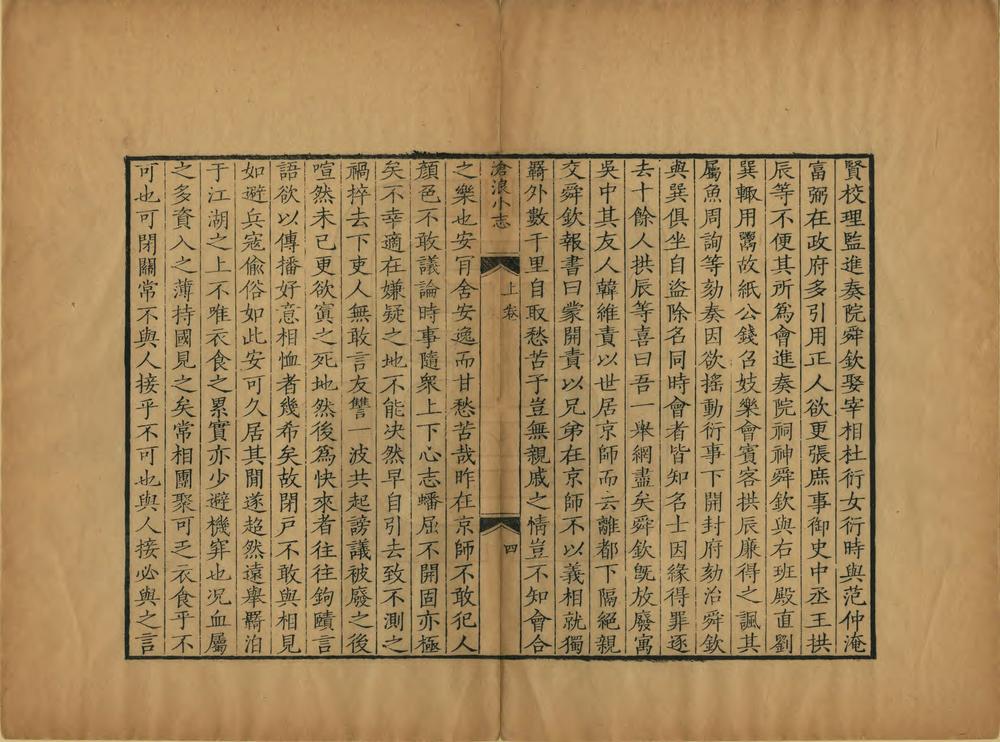 賢校理監進奏院舜欽娶宰相杜衍女衍時與范仲淹
富弼在政府多引用正人欲更張庶事御史中丞王拱
辰等不便其所爲會進奏院祠神舜欽與右班殿直劉
巽輙用鬻故紙公錢召妓樂會賓客拱辰廉得之諷其
屬魚周詢等劾奏因欲搖動衍事下開封府劾治舜欽
與巽俱坐自盜除名同時會者皆知名士因緣得罪逐
去十餘人拱辰等喜曰吾一舉網盡矣舜欽旣放廢寓
吳中其友人韓維責以世居京師而云離都下隔絕親
交舜欽報書曰蒙開責以兄弟在京師不以義相就獨
羇外數千里自取愁苦予豈無親戚之情豈不知會合
滄浪小志
上卷
四
之樂也安肎舍安逸而甘愁苦哉昨在京師不敢犯人
顏色不敢議論時事隨衆上下心志蟠屈不開固亦極
矣不幸適在嫌疑之地不能决然早自引去致不測之
禍捽去下吏人無敢言友讐一波共起謗議被廢之後
喧然未已更欲寘之死地然後爲快來者往往鉤賾言
語欲以傳播好意相恤者幾希矣故閉戸不敢與相見
如避兵寇偷俗如此安可久居其間遂超然遠舉羇泊
于江湖之上不唯衣食之累實亦少避機穽也况血屬
之多資入之薄持國見之矣常相團聚可乏衣食乎不
可也可閉關常不與人接乎不可也與人接必與之言